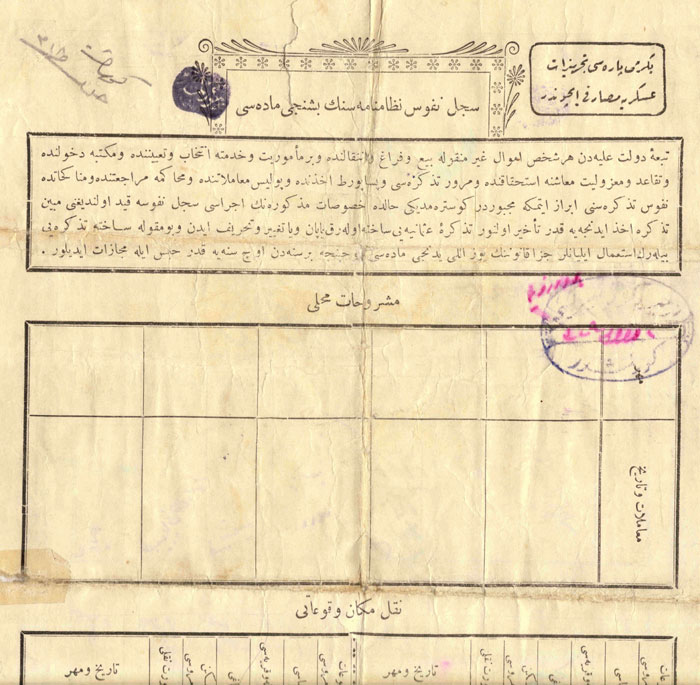 یكرمی پاره سی تجهیزات
عسكریه مصارفی ایچوندر
سجل نفوس نظامنامه سنك بشنجی ماده سی
تبعهٔ دولت علیه دن هر شخص اموال غیر منقوله بیع و فراغ و انتقالنده و بر مأموریت و خدمته انتخاب و تعییننده و مكتبه دخولنده
و تقاعد و معزولیت معاشنه استحقاقنده و مرور تذكره سی و پساپورط اخذنده و پولیس معاملاتنده و محاكمه مراجعتنده و مناكحاتده
نفوس تذكره سنی ابراز ایتمكه مجبوردر كوسترمدیكی حالده خصوصات مذكوره نك اجراسی سجل نفوسه قید اولندیغی مبین
تذكره اخذ ایدنجه یه قدر تأخیر اولنور تذكرهٔ عثمانیه یی ساخته اوله رق یاپان ویا تغییر و تحریف ایدن و بومقوله ساخته تذكره یی
بیله رك استعمال ایلیانلر جزا قانوننك یوز اللی یدنجی ماده سی حكمنجه بر سنه دن اوچ سنه یه قدر حبس ایله مجازات ایدیلور .
مشروحات محلی
مهر
معاملات و تاریخ
نقل مكان وقوعاتی
تاریخ و مهر
تاریخ و مهر